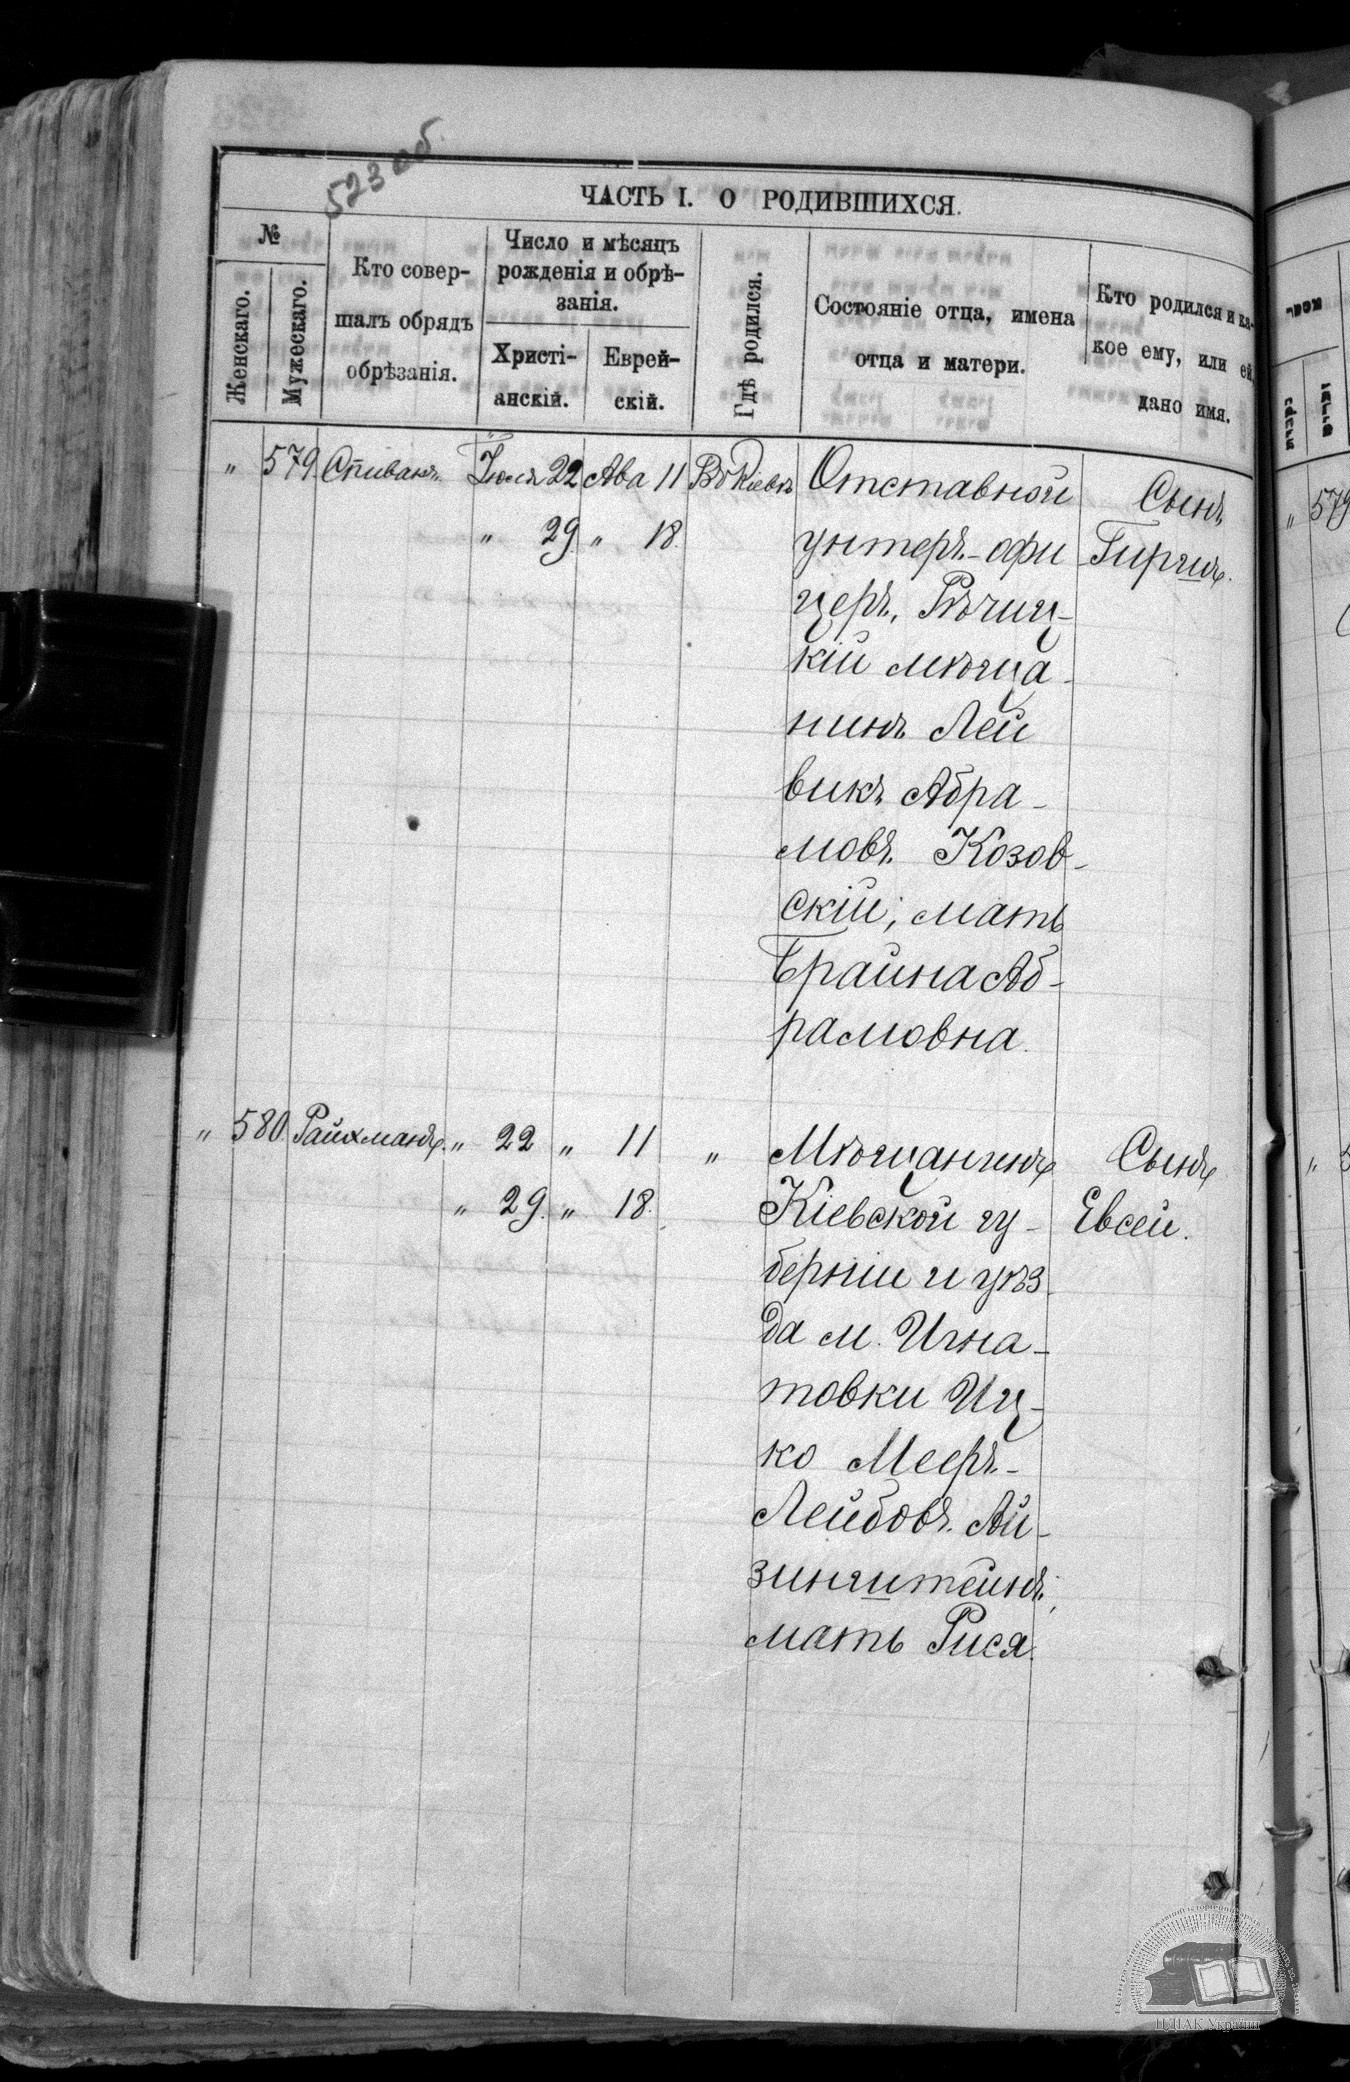 523 об.
ЧАСТЬ I. О РОДИВШИХСЯ.
№
Женскаго.
Мужескаго.
Кто совер-
шалъ обрядъ
обрѣзанія.
Число и мѣсяцъ
рожденія и обрѣ-
занія.
Христі-
анскій.
Еврей-
скій.
Гдѣ родился.
Состояніе отца, имена
отца и матери.
Кто родился и ка-
кое ему, или ей,
дано имя.
„ 579. Спивакъ. Іюля 22 Ава 11 Въ Кіевѣ Отставной Сынъ
„ 29 „ 18. унтеръ-офи Гиршъ.
церъ, Рѣчиц-
кій мѣща-
нинъ Лей
викъ Абра-
мовъ Козов-
скій; мать
Брайна Аб-
рамовна.
„ 580. Райхманъ. „ 22 „ 11 „ Мѣщанинъ Сынъ
„ 29. „ 18. Кіевской гу- Евсей.
берніи и уѣз
да м. Игна-
товки Иц-
ко Мееръ-
Лейбовъ Ай-
зинштейнъ;
мать Рися.
ЦДІАК України